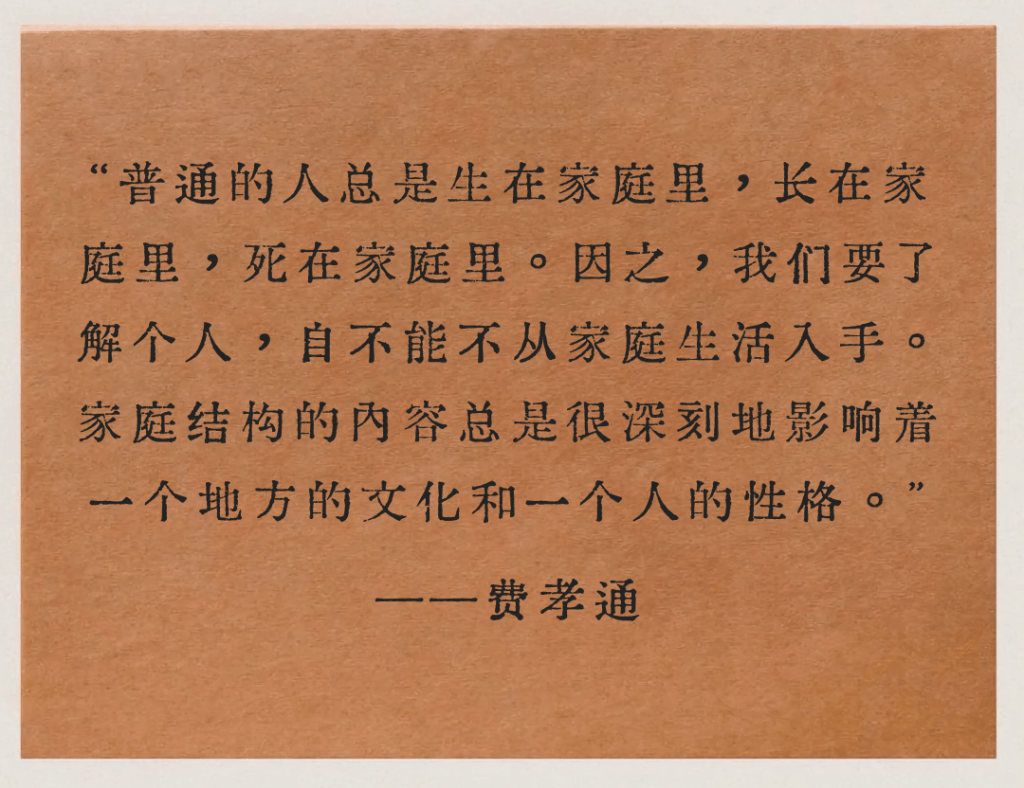 “普通的人总是生在家庭里，长在家
庭里，死在家庭里。因之，我们要了
解个人，自不能不从家庭生活入手。
家庭结构的内容总是很深刻地影响着
一个地方的文化和一个人的性格。”
——费孝通